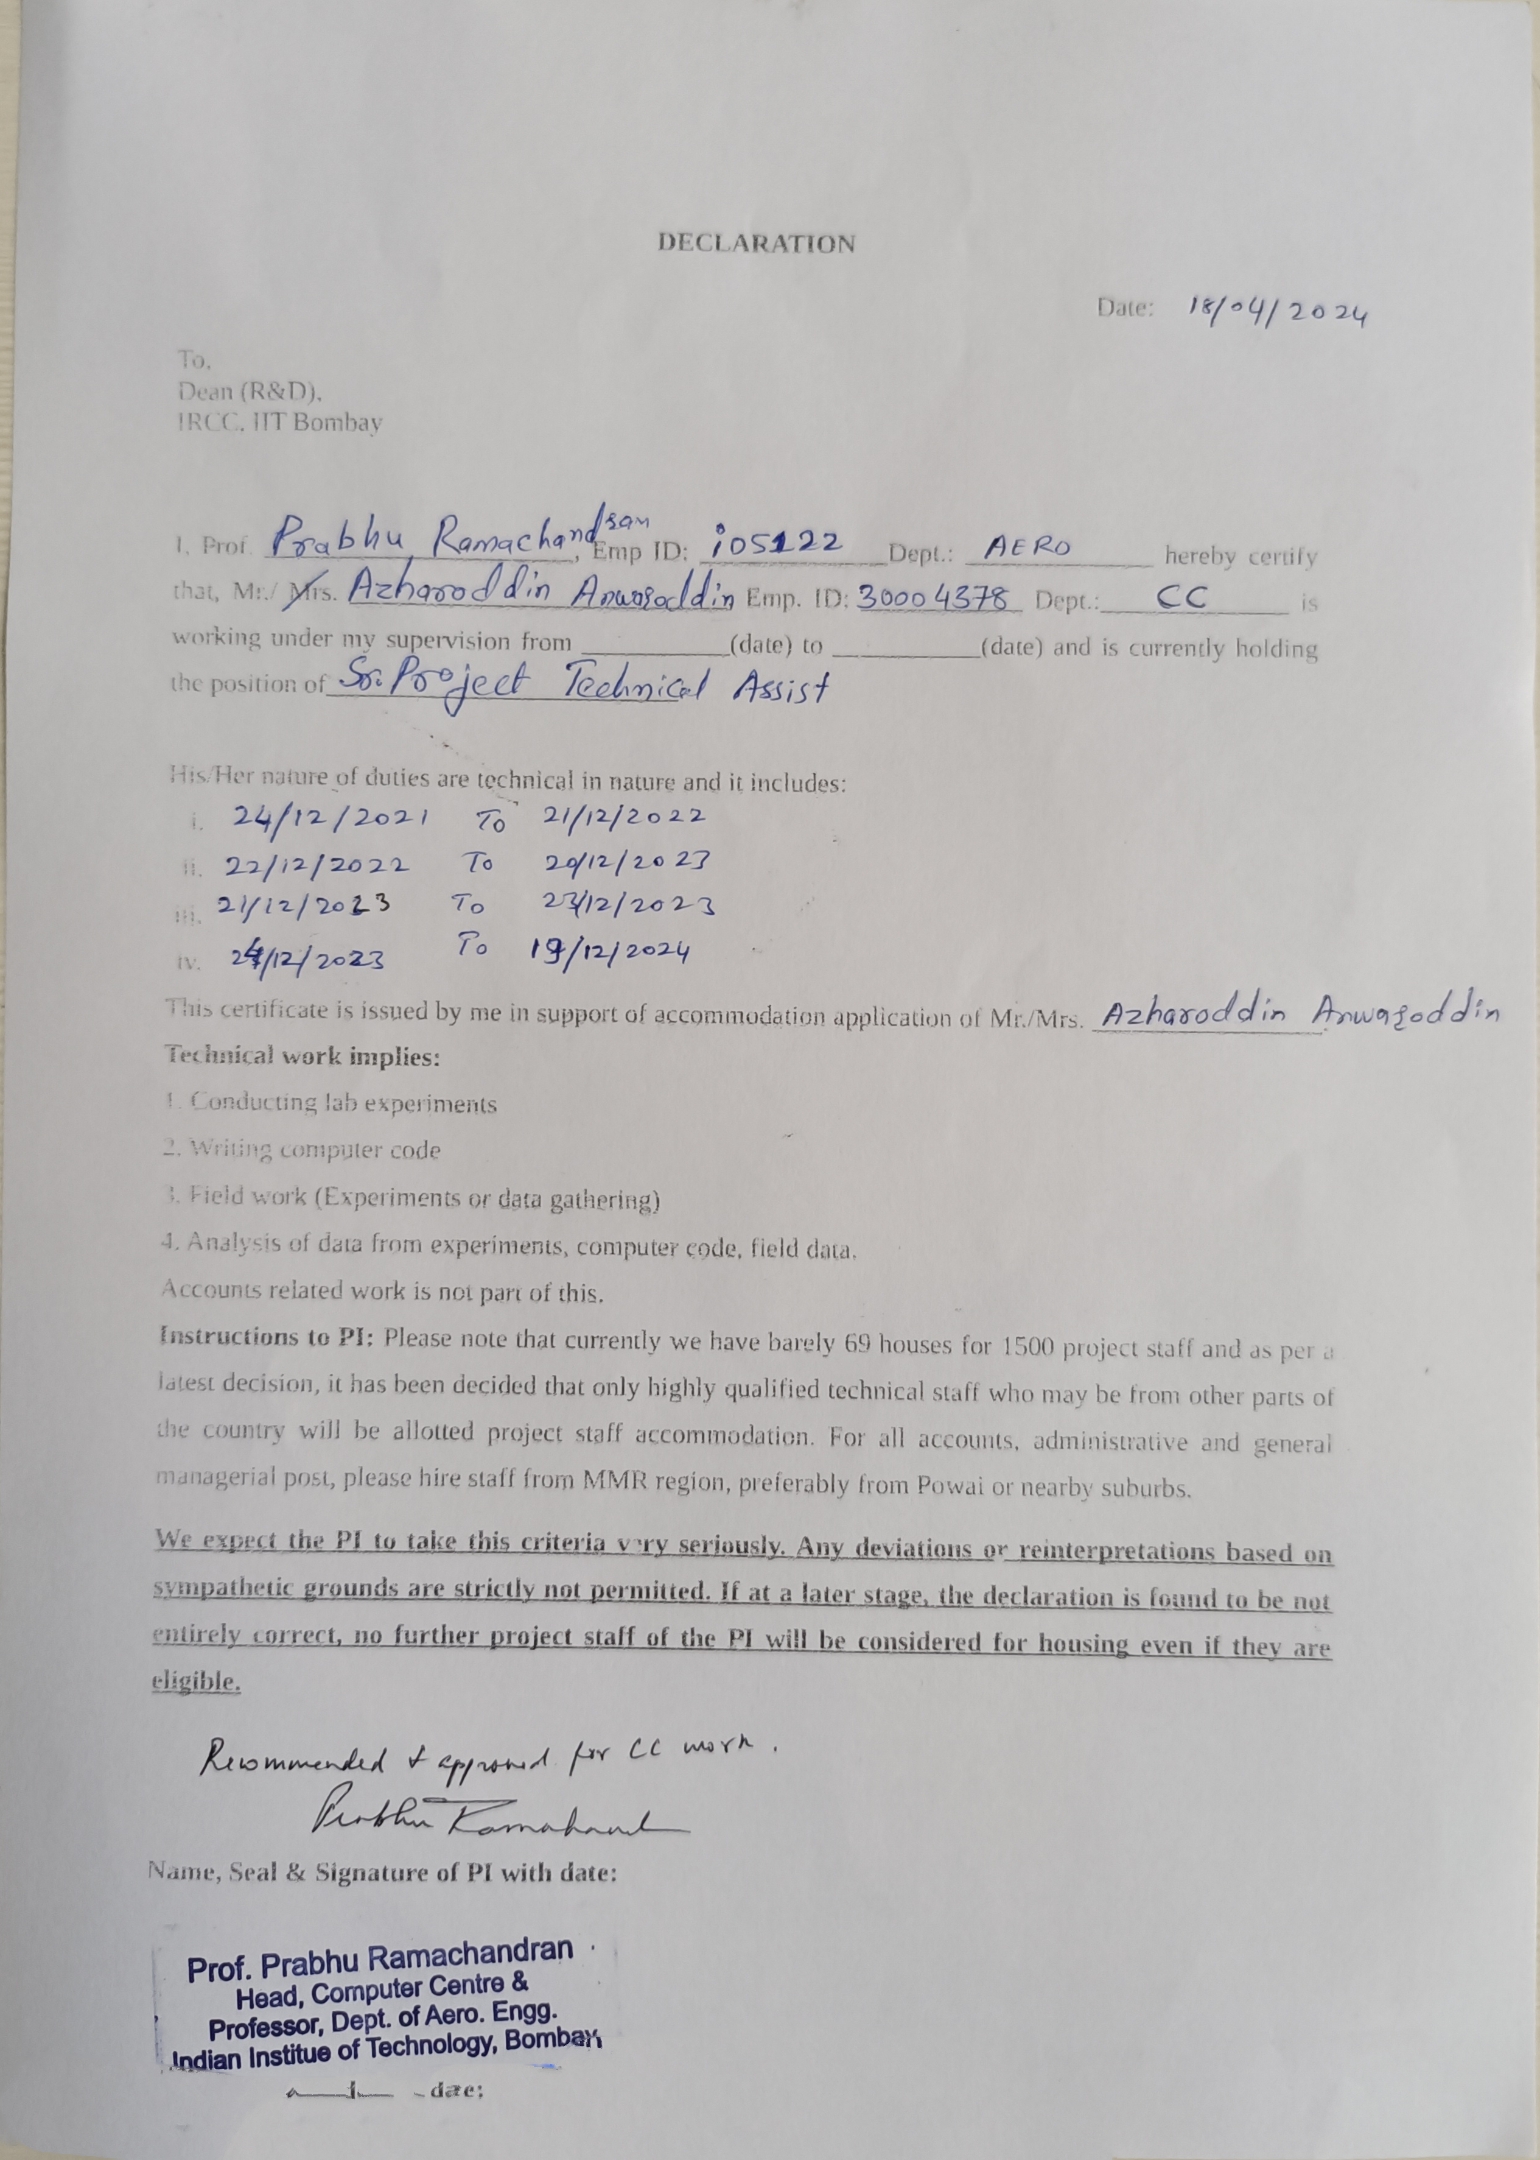 DECLARATION
Date: 18/04/2024
To,
Dean (R&D),
IRCC, IIT Bombay
I, Prof. Prabhu Ramachandran, Emp ID: i05122 Dept.: AERO hereby certify
that, Mr./ Mrs. Azharoddin Anwaroddin Emp. ID: 30004378 Dept.: CC is
working under my supervision from __________(date) to __________(date) and is currently holding
the position of Sr. Project Technical Assist
His/Her nature of duties are technical in nature and it includes:
i. 24/12/2021 To 21/12/2022
ii. 22/12/2022 To 20/12/2023
iii. 21/12/2023 To 23/12/2023
iv. 24/12/2023 To 19/12/2024
This certificate is issued by me in support of accommodation application of Mr./Mrs. Azharoddin Anwaroddin
Technical work implies:
1. Conducting lab experiments
2. Writing computer code
3. Field work (Experiments or data gathering)
4. Analysis of data from experiments, computer code, field data.
Accounts related work is not part of this.
Instructions to PI: Please note that currently we have barely 69 houses for 1500 project staff and as per a
latest decision, it has been decided that only highly qualified technical staff who may be from other parts of
the country will be allotted project staff accommodation. For all accounts, administrative and general
managerial post, please hire staff from MMR region, preferably from Powai or nearby suburbs.
We expect the PI to take this criteria very seriously. Any deviations or reinterpretations based on
sympathetic grounds are strictly not permitted. If at a later stage, the declaration is found to be not
entirely correct, no further project staff of the PI will be considered for housing even if they are
eligible.
Recommended + approved for CC work.
Prabhu Ramachand
Name, Seal & Signature of PI with date:
Prof. Prabhu Ramachandran
Head, Computer Centre &
Professor, Dept. of Aero. Engg.
Indian Institue of Technology, Bombay
date: